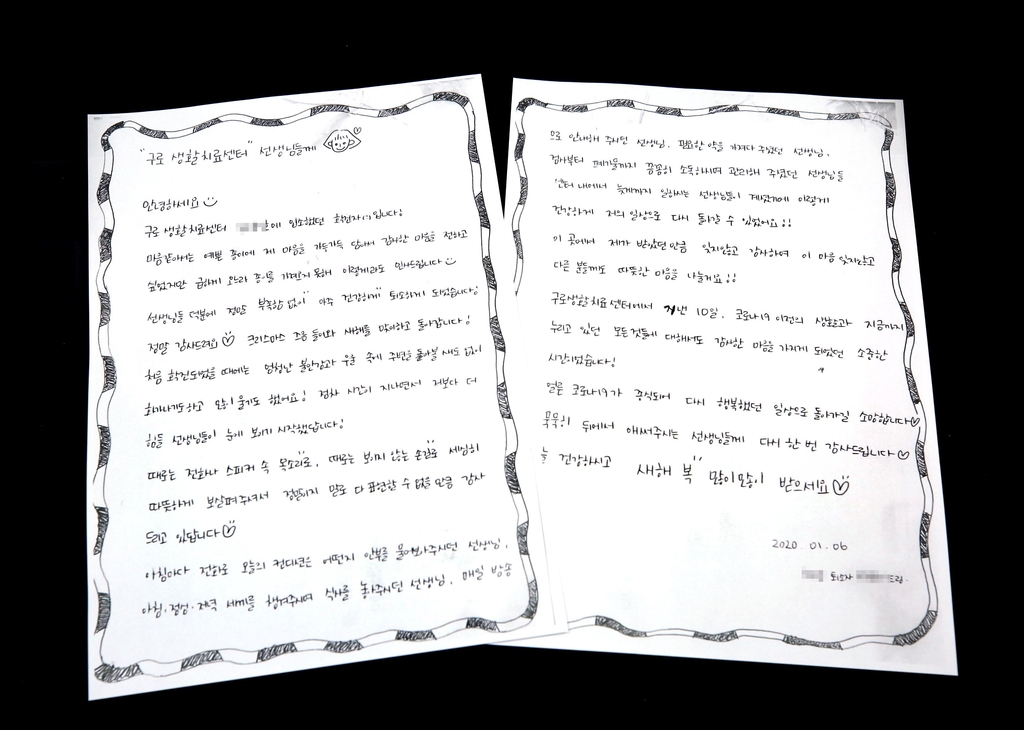 "구로 생활치료센터" 선생님들께
안녕하세요
구로 생활치료센터 호에 입소했던 확진자입니다!
마음같아서는 예쁜 종이에 제 마음을 가득가득 담아서 감사한 마음을 전하고
싶었지만 급하게 오느라 종이를 가져오지 못해 이렇게라도 인사드립니다
선생님들 덕분에 정말 부족함 없이 아주 건강하게 퇴소하게 되었습니다!
정말 감사드려요 크리스마스 즈음 들어와 새해를 맞이하고 돌아갑니다!
처음 확진되었을 때에는 엄청난 불안감과 우울 속에 주변을 돌아볼 새도 없이
화가나기도하고 많이 울기도 했어요! 점차 시간이 지나면서 저보다 더
힘들 선생님들이 눈에 보이기 시작했답니다!
때로는 전화나 스피커 속 목소리로, 때로는 보이지 않는 손길로 세심히
따뜻하게 보살펴주셔서 정말이지 말로 다 표현할 수 없을 만큼 감사
드리고 있답니다
아침마다 전화로 오늘의 컨디션은 어떤지 안부를 물어봐주시던 선생님,
아침·점심·저녁 세끼를 챙겨주시며 식사를 놔주시던 선생님, 매일 방송
으로 안내해 주시던 선생님, 필요한 약을 가져다 주셨던 선생님,
검사부터 폐기물까지 꼼꼼히 소독하시며 관리해 주셨던 선생님들
센터 내에서 늦게까지 일하시는 선생님들이 계셨기에 이렇게
건강하게 저의 일상으로 다시 돌아갈 수 있었어요!!
이 곳에서 제가 받았던 만큼 잊지않고 감사하며 이 마음 잊지않고
다른 분들께도 따뜻한 마음을 나눌게요!!
구로생활치료센터에서 지낸 10일, 코로나19 이전의 생활과 지금까지
누리고 있던 모든것들에 대해서도 감사한 마음을 가지게 되었던 소중한
시간이었습니다!
얼른 코로나19가 종식되어 다시 행복했던 일상으로 돌아가길 소망합니다
묵묵히 뒤에서 애써주시는 선생님들께 다시 한 번 감사드립니다
늘 건강하시고 새해 복 많이많이 받으세요
2020.01.06
퇴소자 드림.